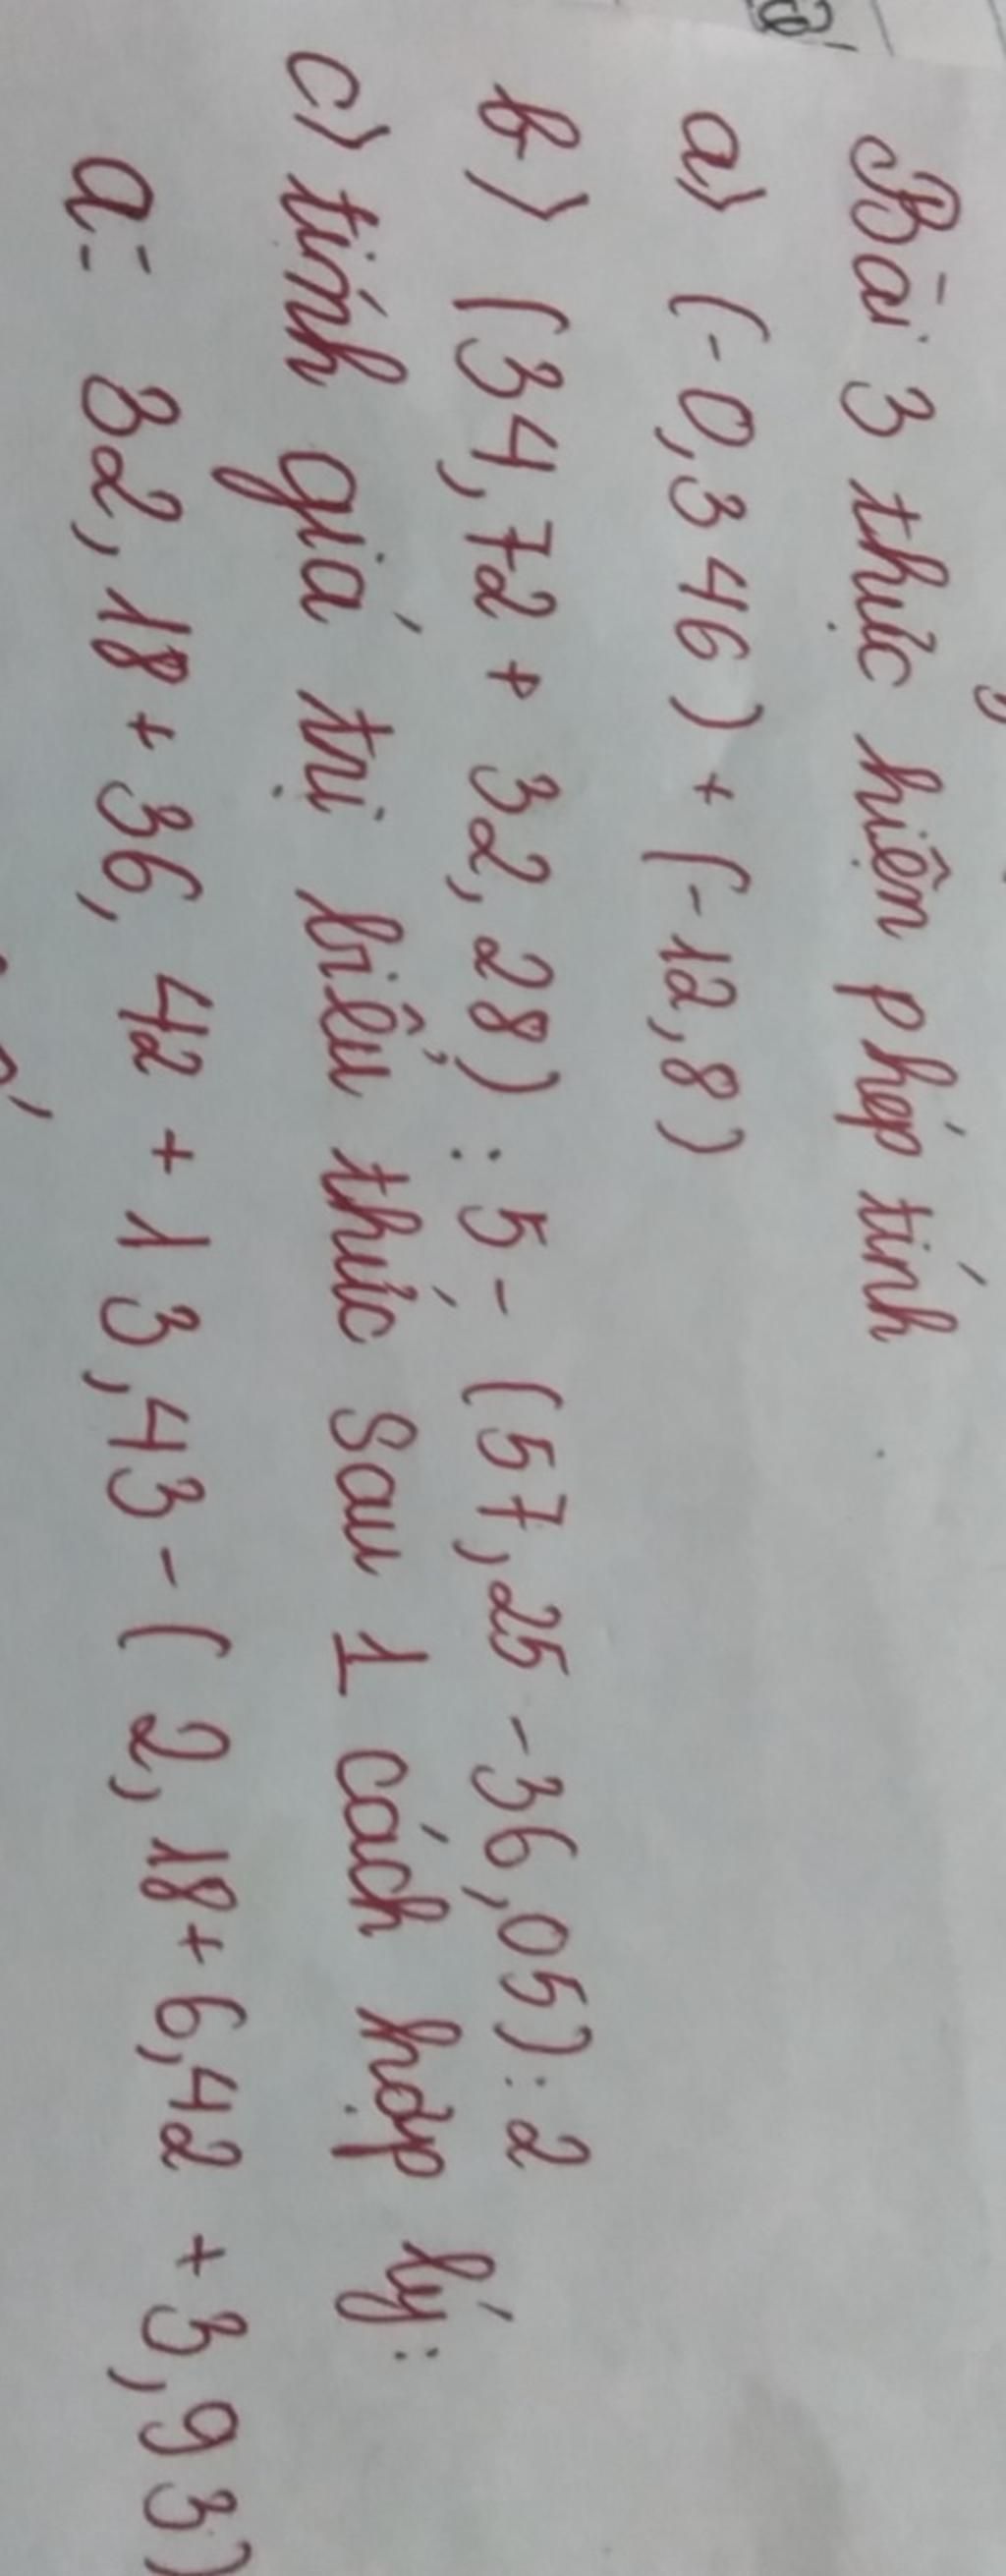 Bài 3 thực hiện phép tính
a) (-0,346) + (-12,8)
b) (34,72 + 32,28) : 5 - (57,25 - 36,05) : 2
c) tính giá trị biểu thức sau 1 cách hợp lý:
a = 32,18 + 36,42 + 13,43 - (2,18 + 6,42 + 3,93)